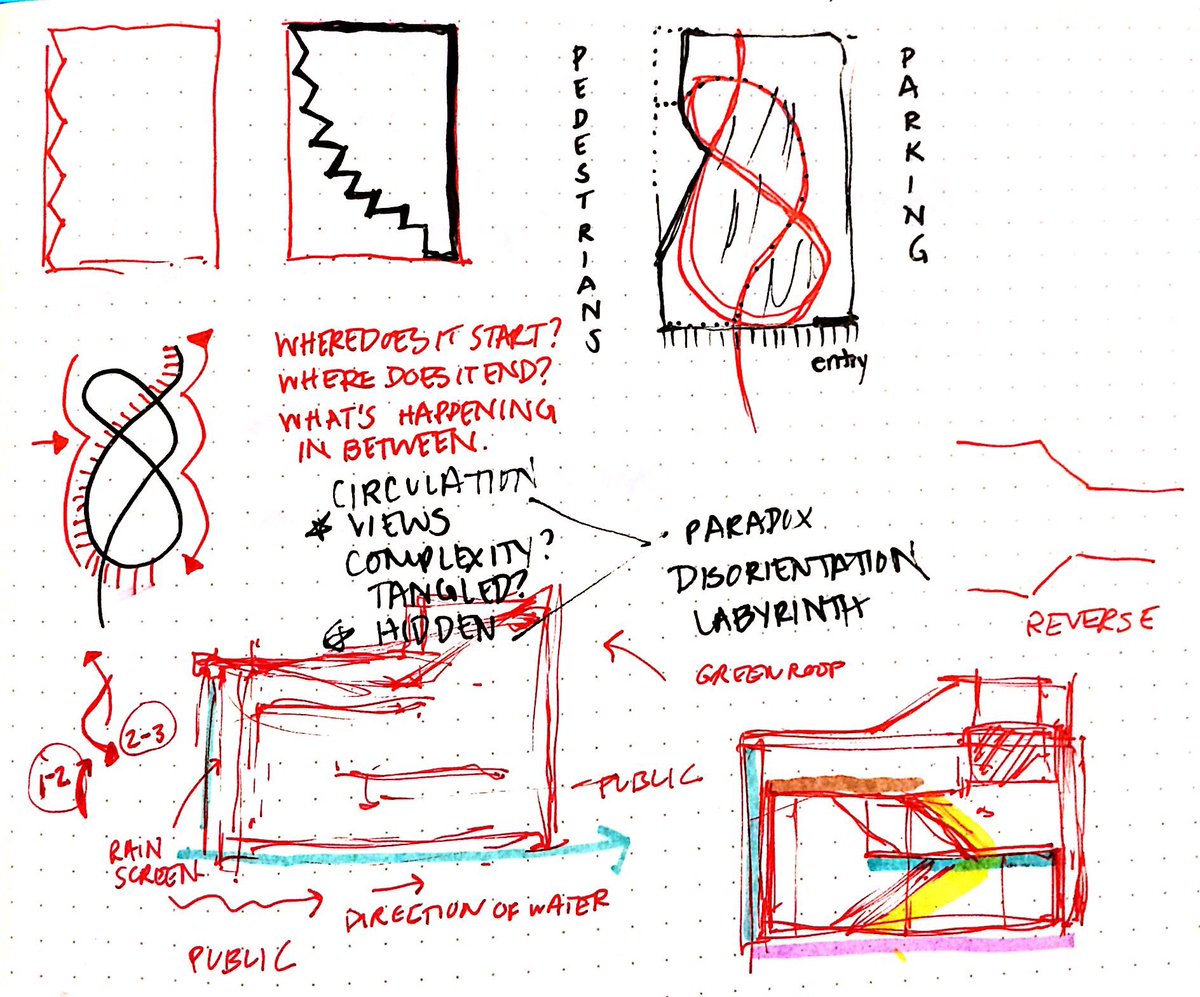 PEDESTRIANS
PARKING
entry
WHERE DOES IT START?
WHERE DOES IT END?
WHAT'S HAPPENING
IN BETWEEN.
CIRCULATION
VIEWS
COMPLEXITY?
TANGLED?
HIDDEN
PARADOX
DISORIENTATION
LABYRINTH
REVERSE
GREEN ROOF
2-3
1-2
PUBLIC
RAIN
SCREEN
DIRECTION OF WATER
PUBLIC